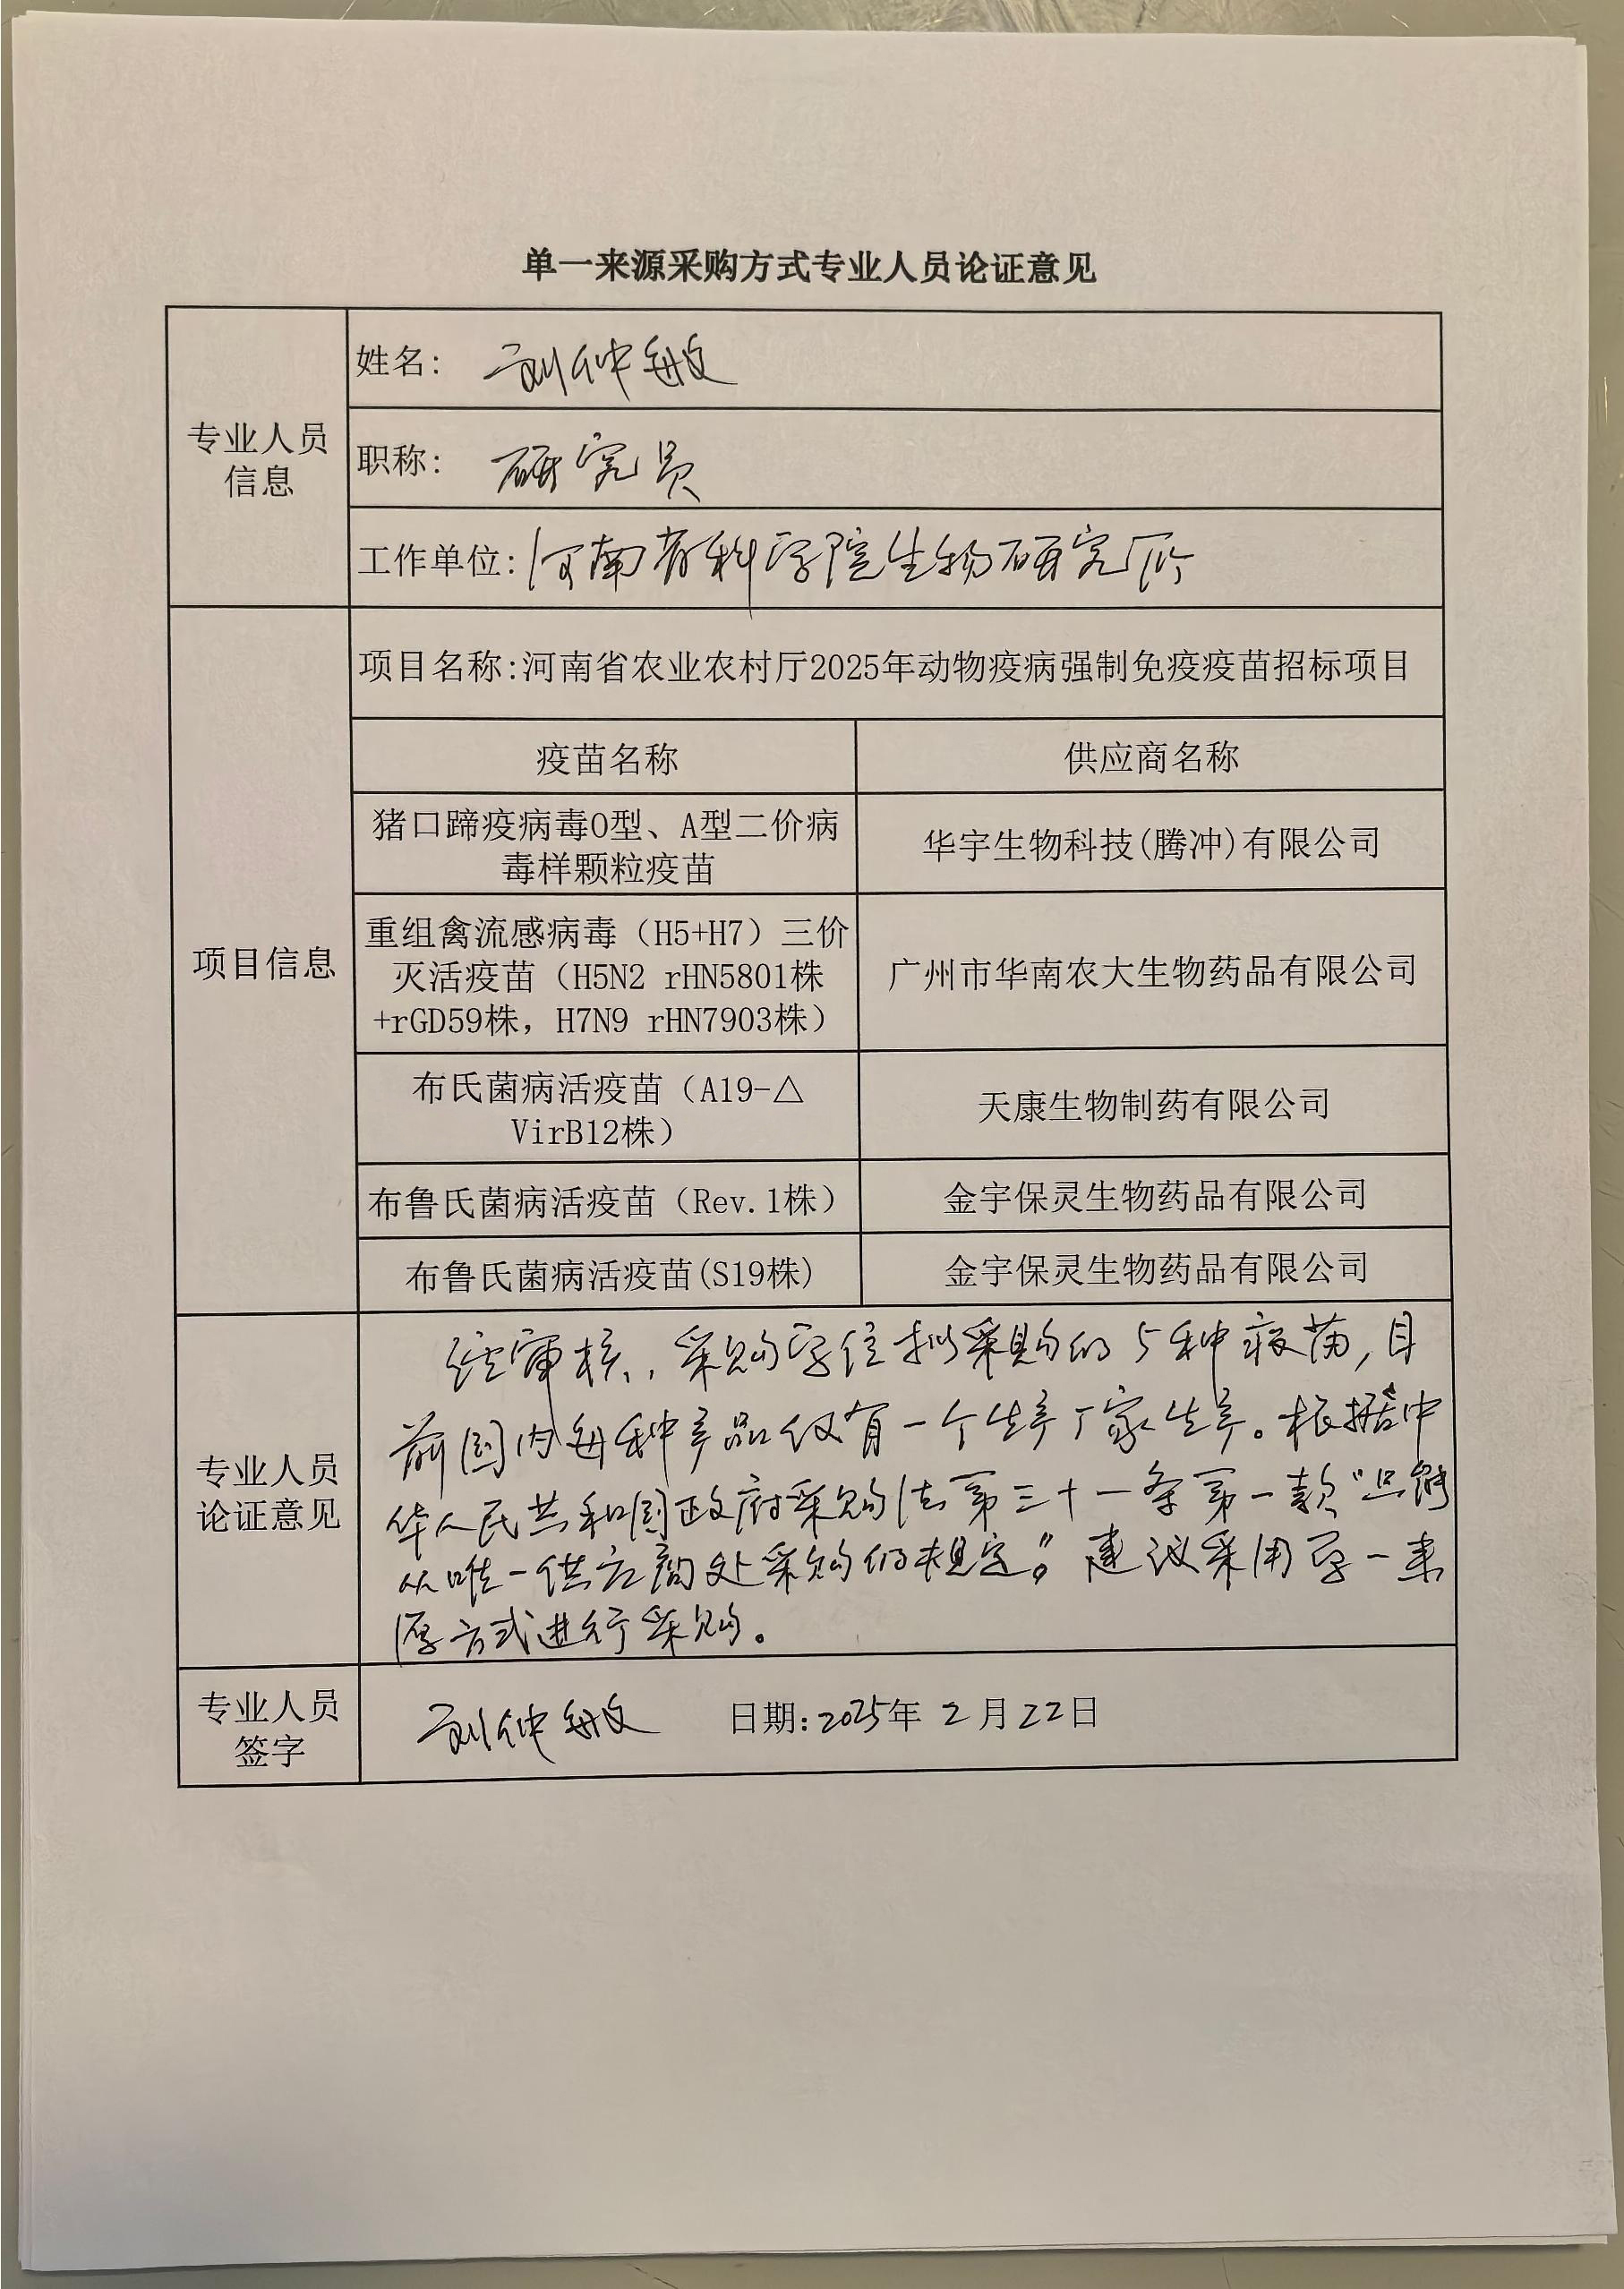 单一来源采购方式专业人员论证意见
专业人员
信息
姓名: 刘仲敏
职称: 研究员
工作单位: 河南省科学院生物研究所
项目信息
项目名称:河南省农业农村厅2025年动物疫病强制免疫疫苗招标项目
疫苗名称 供应商名称
猪口蹄疫病毒O型、A型二价病
毒样颗粒疫苗
华宇生物科技(腾冲)有限公司
重组禽流感病毒（H5+H7）三价
灭活疫苗（H5N2 rHN5801株
+rGD59株，H7N9 rHN7903株）
广州市华南农大生物药品有限公司
布氏菌病活疫苗（A19-△
VirB12株）
天康生物制药有限公司
布鲁氏菌病活疫苗（Rev.1株） 金宇保灵生物药品有限公司
布鲁氏菌病活疫苗(S19株) 金宇保灵生物药品有限公司
专业人员
论证意见
经审核，采购单位拟采购的5种疫苗，目
前国内每种产品仅有一个生产厂家生产。根据中
华人民共和国政府采购法第三十一条第一款“只能
从唯一供应商处采购的规定”。建议采用单一来
源方式进行采购。
专业人员
签字
刘仲敏 日期:2025年 2月22日